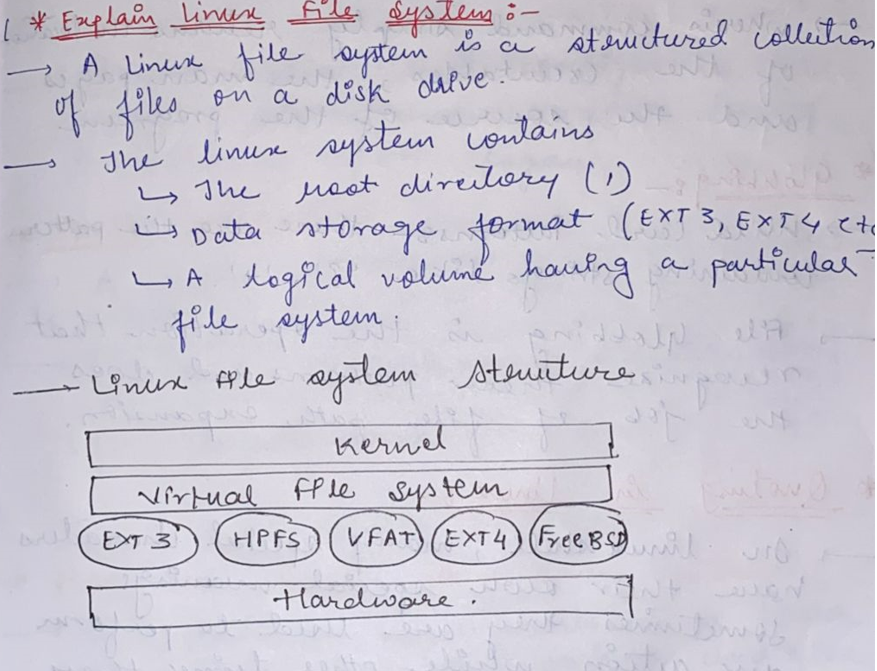 * Explain Linux File System :-
→ A Linux file system is a structured collection
of files on a disk drive.
→ The linux system contains
↳ The root directory (1)
↳ Data storage format (EXT3, EXT4 etc
↳ A logical volume having a particular
file system.
→ Linux File system structure
Kernel
Virtual File System
EXT3 HPFS VFAT EXT4 FreeBSD
Hardware.